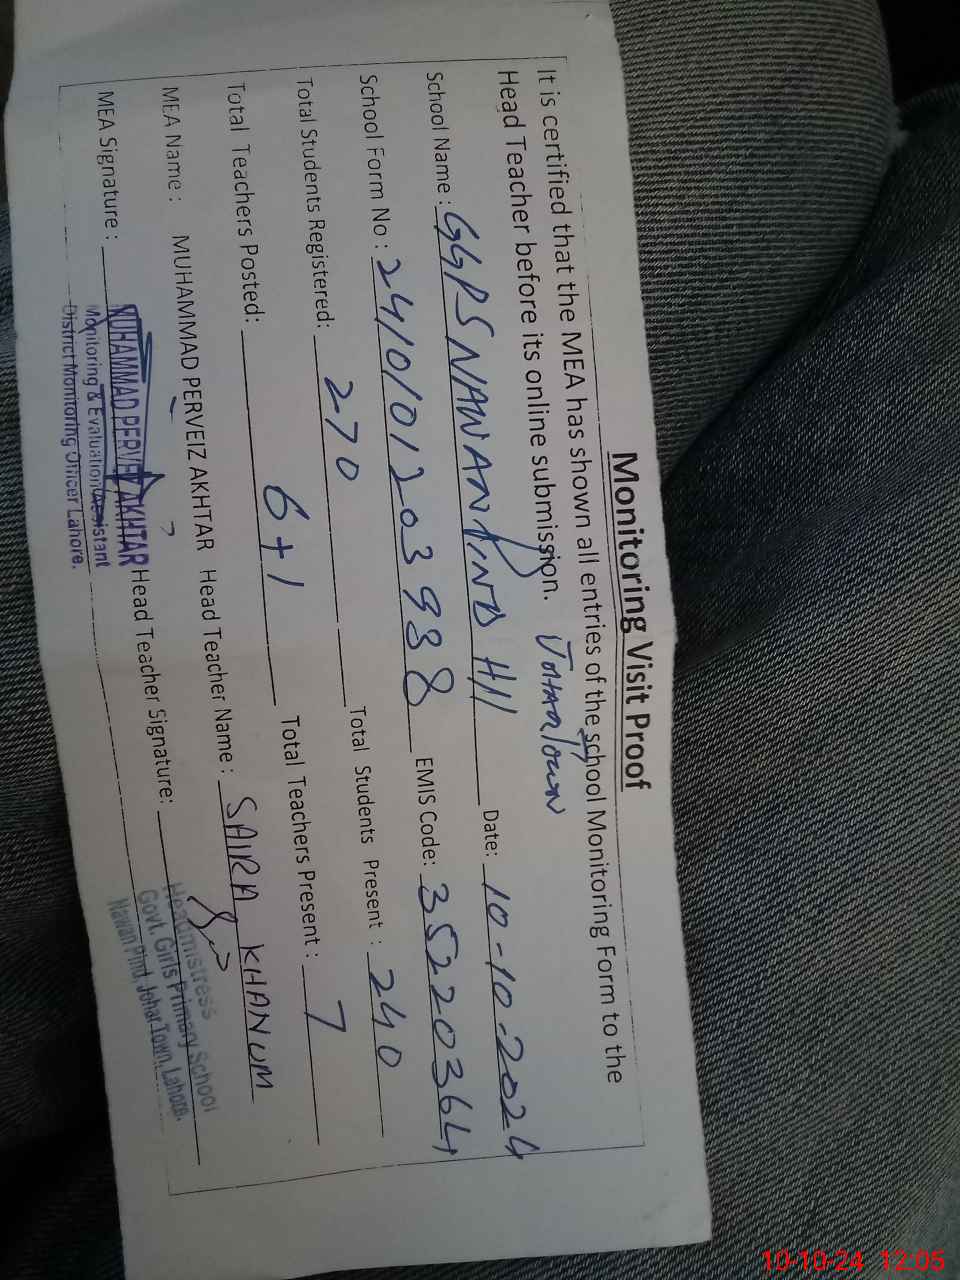 Monitoring Visit Proof
It is certified that the MEA has shown all entries of the school Monitoring Form to the
Head Teacher before its online submission.
School Name : GGPS NAWAN PIND H/I Date: 10-10-2024
School Form No : 24101012039 38 EMIS Code: 35220364
Total Students Registered: 270 Total Students Present : 240
Total Teachers Posted: 6+1 Total Teachers Present : 7
MEA Name : MUHAMMAD PERVEIZ AKHTAR Head Teacher Name : SAIRA KHANUM
MEA Signature : Head Teacher Signature:
MUHAMMAD PERVEZ AKHTAR
Monitoring & Evaluation Assistant
District Monitoring Officer Lahore.
Headmistress
Govt. Girls Primary School
Nawan Pind, Johar Town, Lahore.
10-10-24 12:05